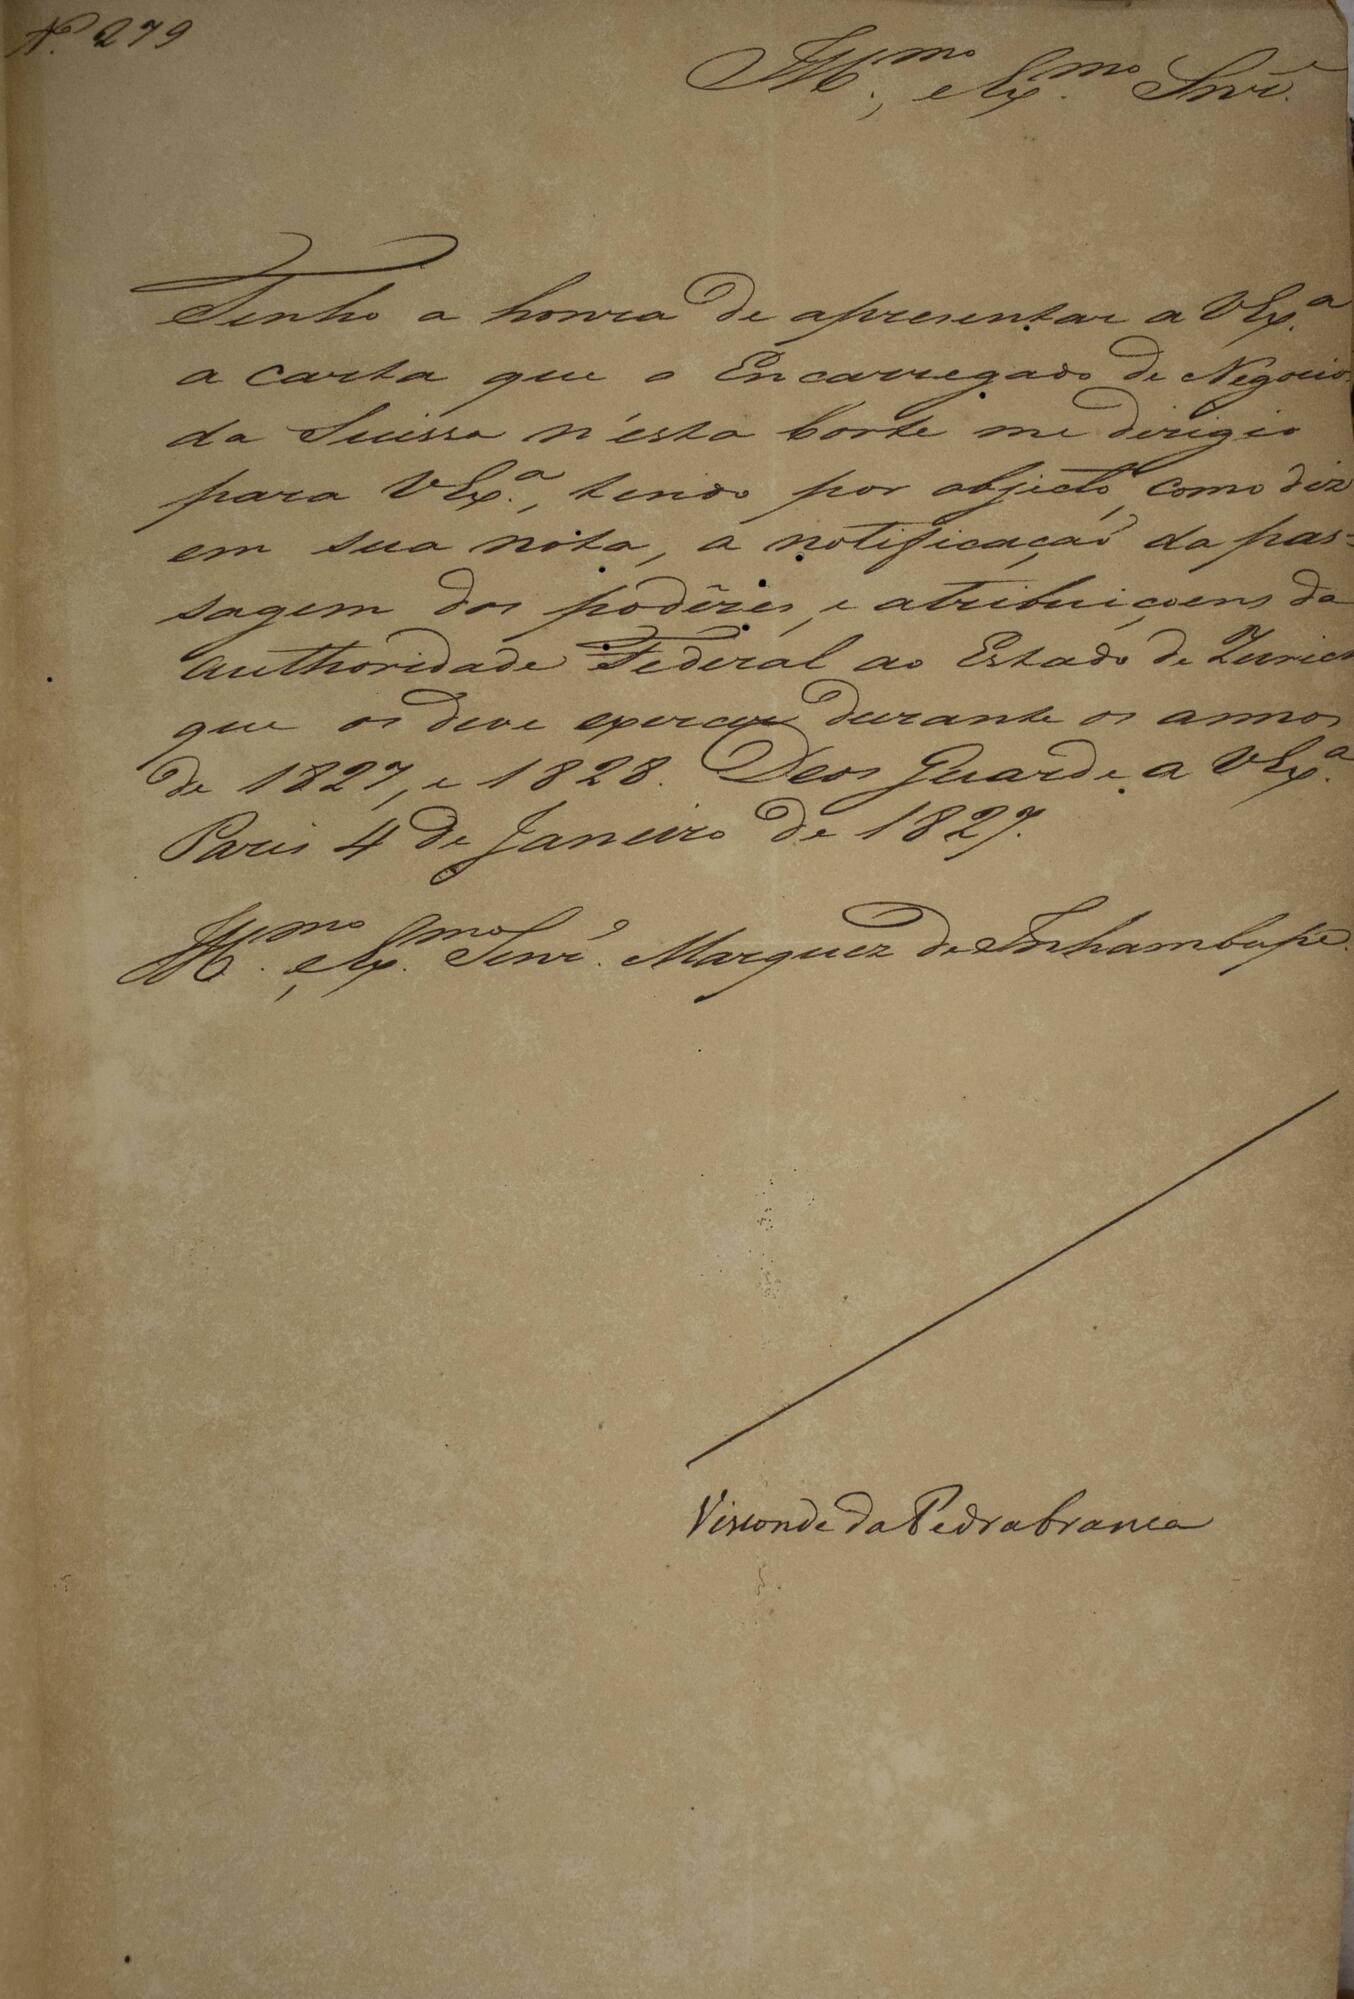 N.º 279
Ill.mo, e Ex.mo Snr.
Tenho a honra de apresentar a VEx.a
a carta que o Encarregado de Negocios
da Suissa n'esta Corte me dirigio
para VEx.a, tendo por objecto, como diz
em sua nota, a notificação da pas-
sagem dos podêres, e atribuiçoens da
Authoridade Federal ao Estado de Zurich
que os deve exercer durante os annos
de 1827, e 1828. Deos Guarde a VEx.a
Paris 4 de Janeiro de 1827.
Ill.mo, e Ex.mo Senr. Marquez de Inhambupe.
Visconde da Pedrabranca